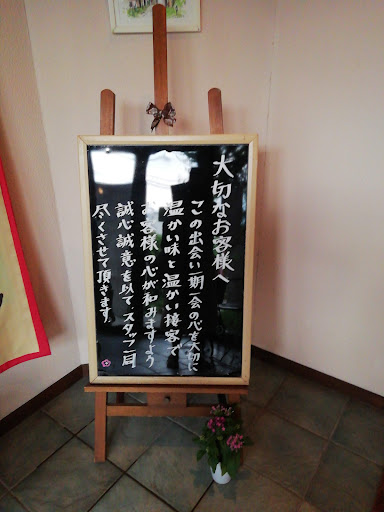 大切なお客様へ
この出会い一期一会の心を大切に
温かい味と温かい接客で
お客様の心が和みますよう
誠心誠意を以て、スタッフ一同
尽くさせて頂きます。